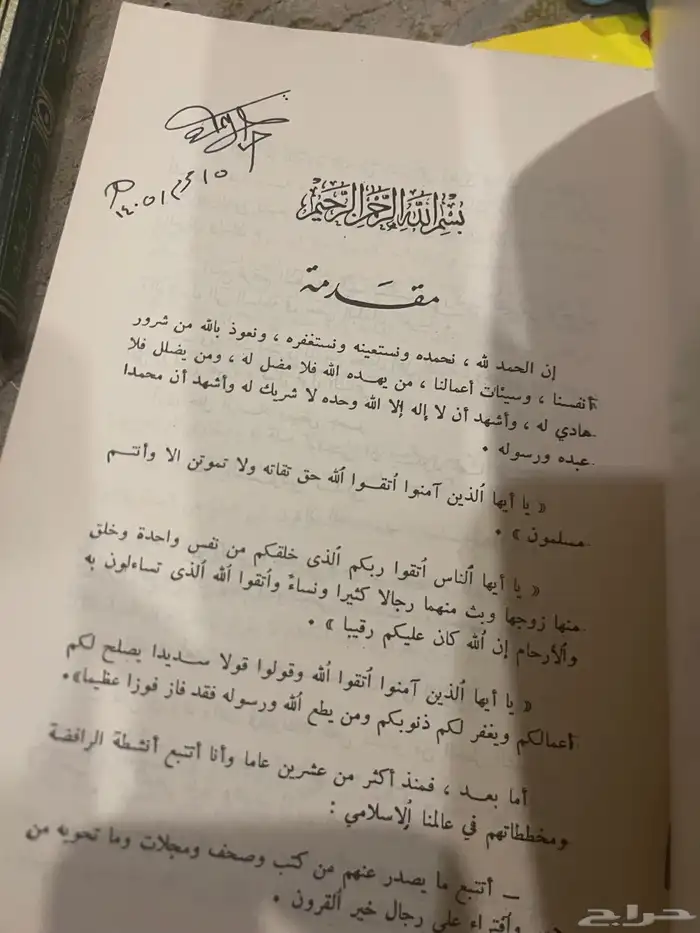 ١٥ محرم ١٤٠٥
بسم الله الرحمن الرحيم
مقدمة
إن الحمد لله ، نحمده ونستعينه ونستغفره ، ونعوذ بالله من شرور
أنفسنا ، وسيئات أعمالنا ، من يهده الله فلا مضل له ، ومن يضلل فلا
هادي له ، وأشهد أن لا إله إلا الله وحده لا شريك له وأشهد أن محمدا
عبده ورسوله .
« يا أيها ٱلذين آمنوا ٱتقوا ٱلله حق تقاته ولا تموتن الا وأنتم
مسلمون » .
« يا أيها ٱلناس ٱتقوا ربكم ٱلذى خلقكم من نفس واحدة وخلق
منها زوجها وبث منهما رجالا كثيرا ونساءً وٱتقوا ٱلله ٱلذى تساءلون به
وٱلأرحام إن ٱلله كان عليكم رقيبا » .
« يا أيها ٱلذين آمنوا ٱتقوا ٱلله وقولوا قولا سديدا يصلح لكم
أعمالكم ويغفر لكم ذنوبكم ومن يطع ٱلله ورسوله فقد فاز فوزا عظيما» .
أما بعد ، فمنذ أكثر من عشرين عاما وأنا أتتبع أنشطة الرافضة
ومخططاتهم في عالمنا ٱلإسلامي :
ــ أتتبع ما يصدر عنهم من كتب وصحف ومجلات وما تحويه من
وٱفتراء على رجال خير ٱلقرون .
حراج